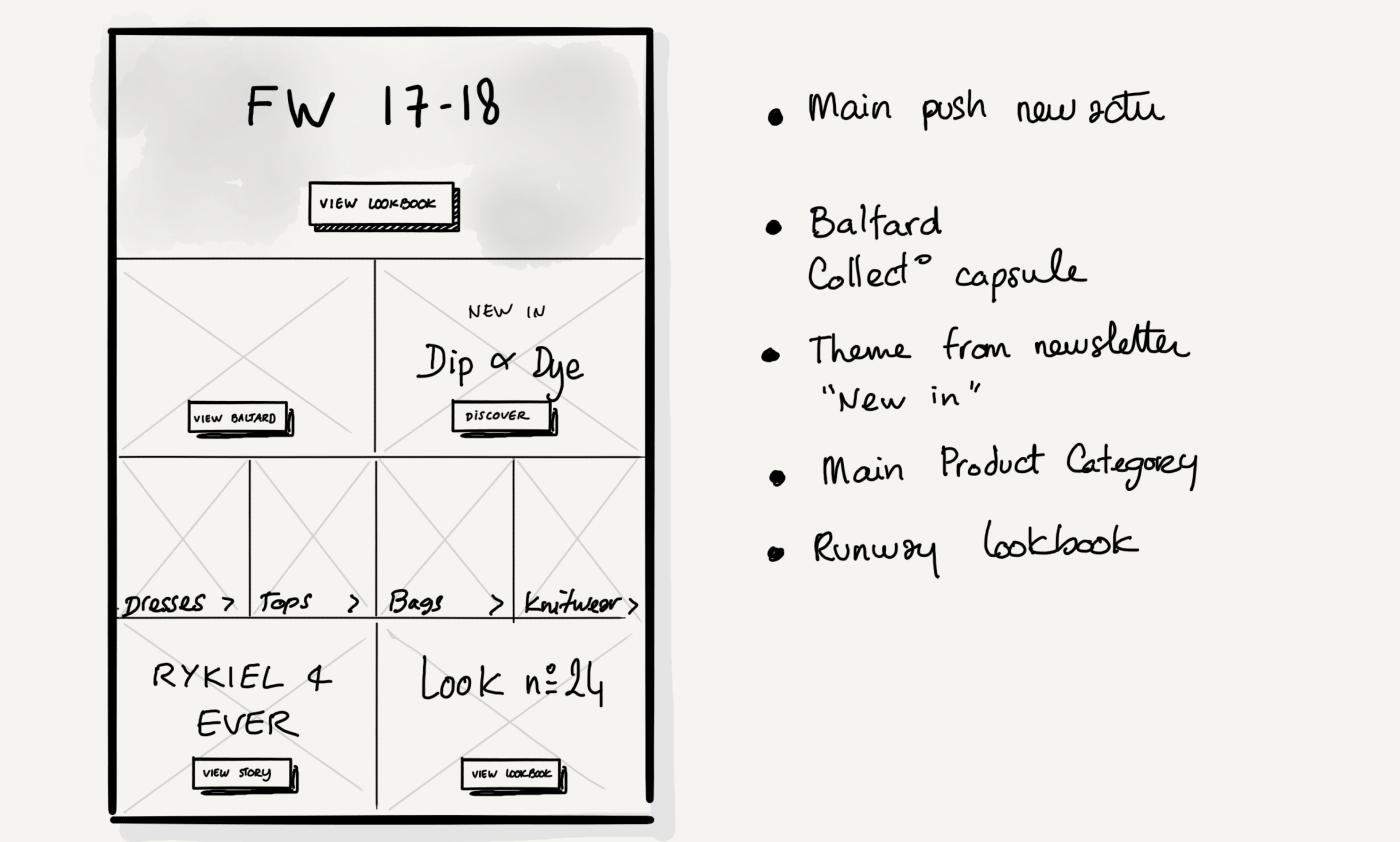 FW 17-18
VIEW LOOKBOOK
VIEW BALTARD
NEW IN
Dip & Dye
DISCOVER
Dresses >
Tops >
Bags >
Knitwear >
RYKIEL 4
EVER
VIEW STORY
Look nº 24
VIEW LOOKBOOK
• Main push new actu
• Baltard
Collect° capsule
• Theme from newsletter
"New in"
• Main Product Category
• Runway lookbook